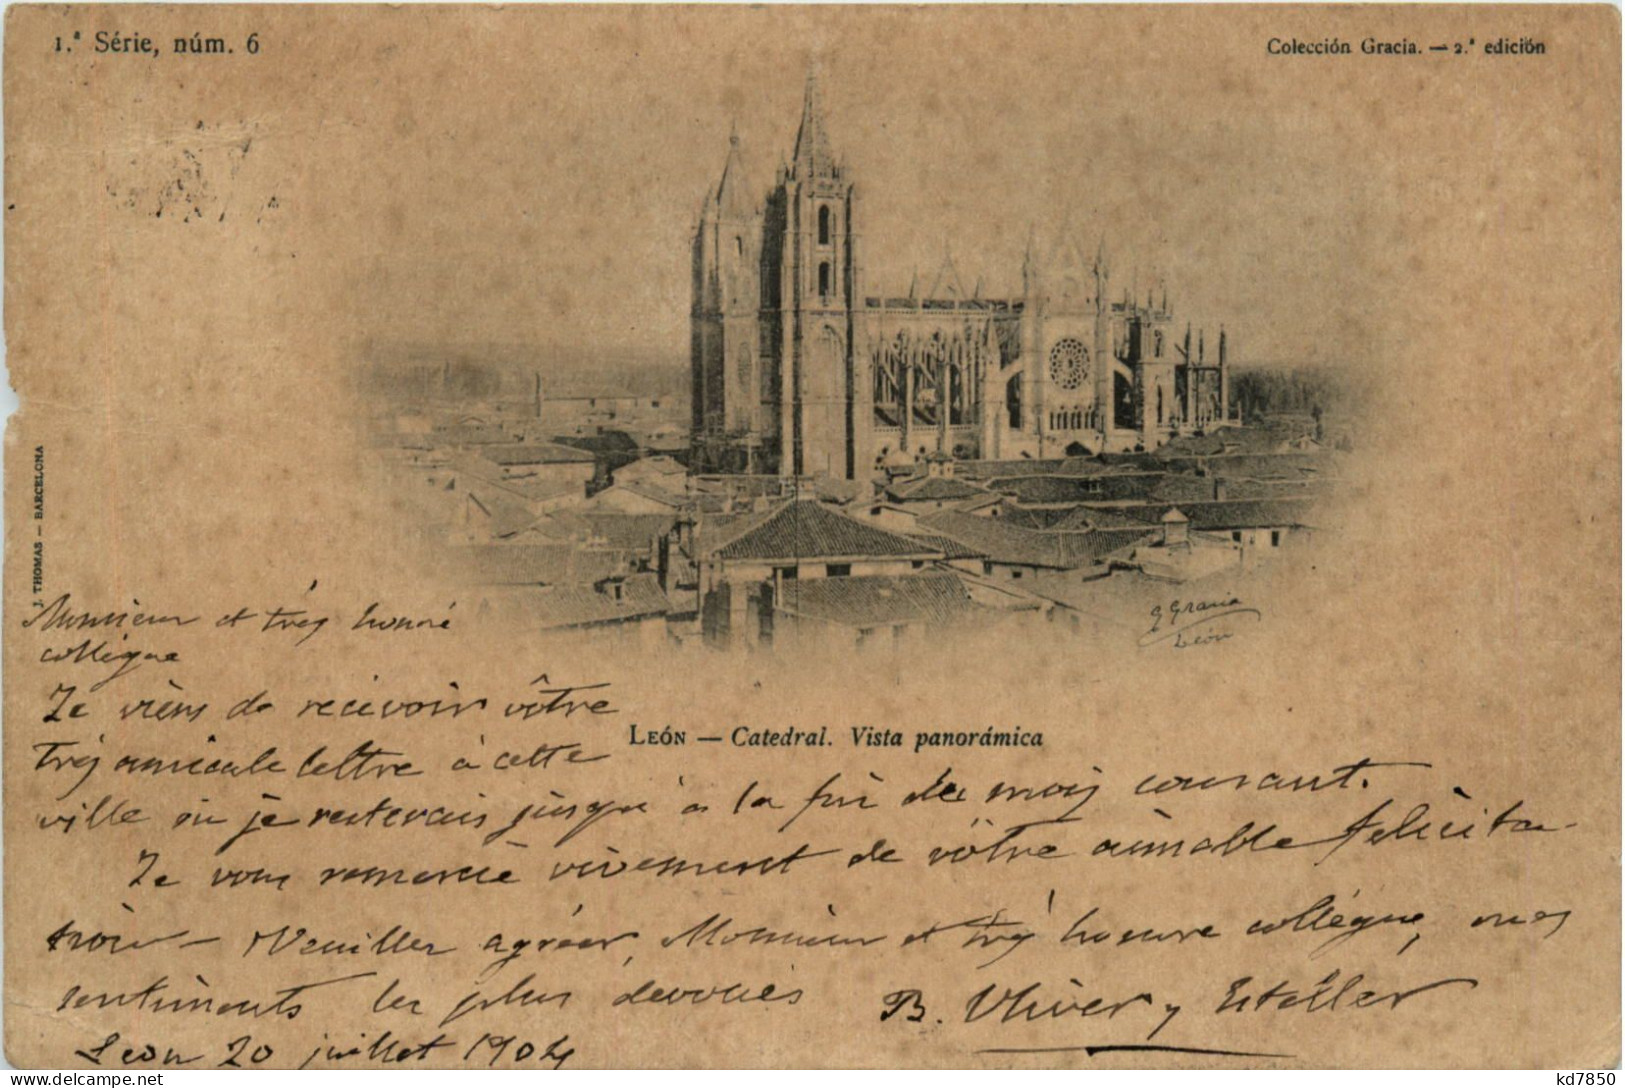 1.ª Série, núm. 6
Colección Gracia. — 2.ª edición
J. THOMAS — BARCELONA
G Gracia
León
LEÓN — Catedral. Vista panorámica
Monsieur et très honoré
collègue
Je viens de recevoir vôtre
très amicale lettre à cette
ville où je resterais jusqu'à la fin de mois courant.
Je vous remercie vivement de vôtre aimable félicita-
tion — Veuillez agréer, Monsieur et très honoré collègue, mes
sentiments les plus devoués
B. Oliver y Esteller
León 20 juillet 1904
kd7850